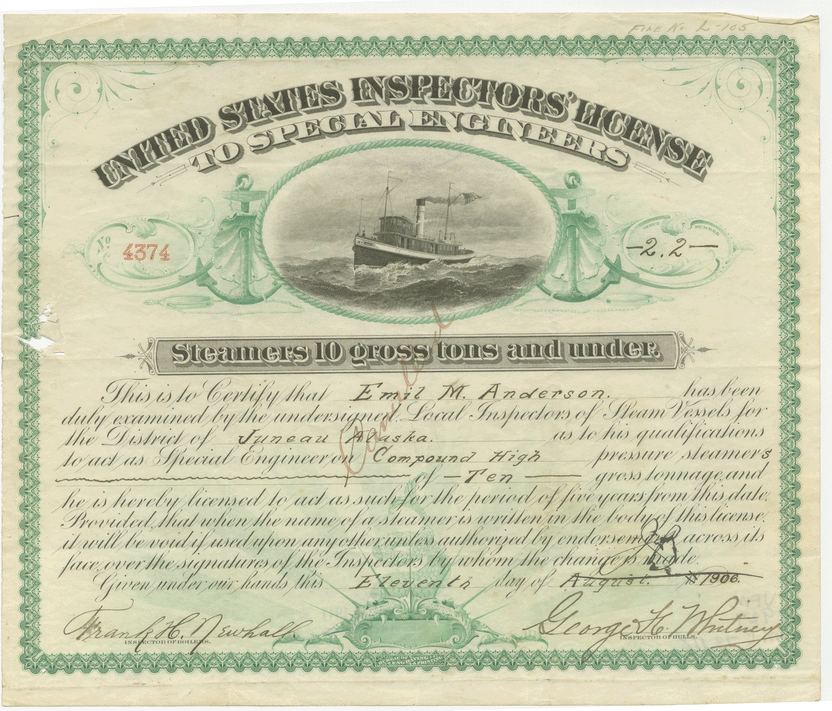 File No. L-105
UNITED STATES INSPECTORS' LICENSE
TO SPECIAL ENGINEERS
No 4374
-2.2-
Steamers 10 gross tons and under.
Cancelled
This is to Certify that Emil M. Anderson. has been
duly examined by the undersigned, Local Inspectors of Steam Vessels for
the District of Juneau, Alaska. as to his qualifications
to act as Special Engineer on Compound High pressure steamers
of - Ten - gross tonnage, and
he is hereby licensed to act as such for the period of five years from this date.
Provided, that when the name of a steamer is written in the body of this license,
it will be void if used upon any other unless authorized by endorsement across its
face, over the signatures of the Inspectors by whom the change is made.
Given under our hands this Eleventh day of August 1906.
Frank H. Newhall
INSPECTOR OF BOILERS.
George H. Whitney
INSPECTOR OF HULLS.